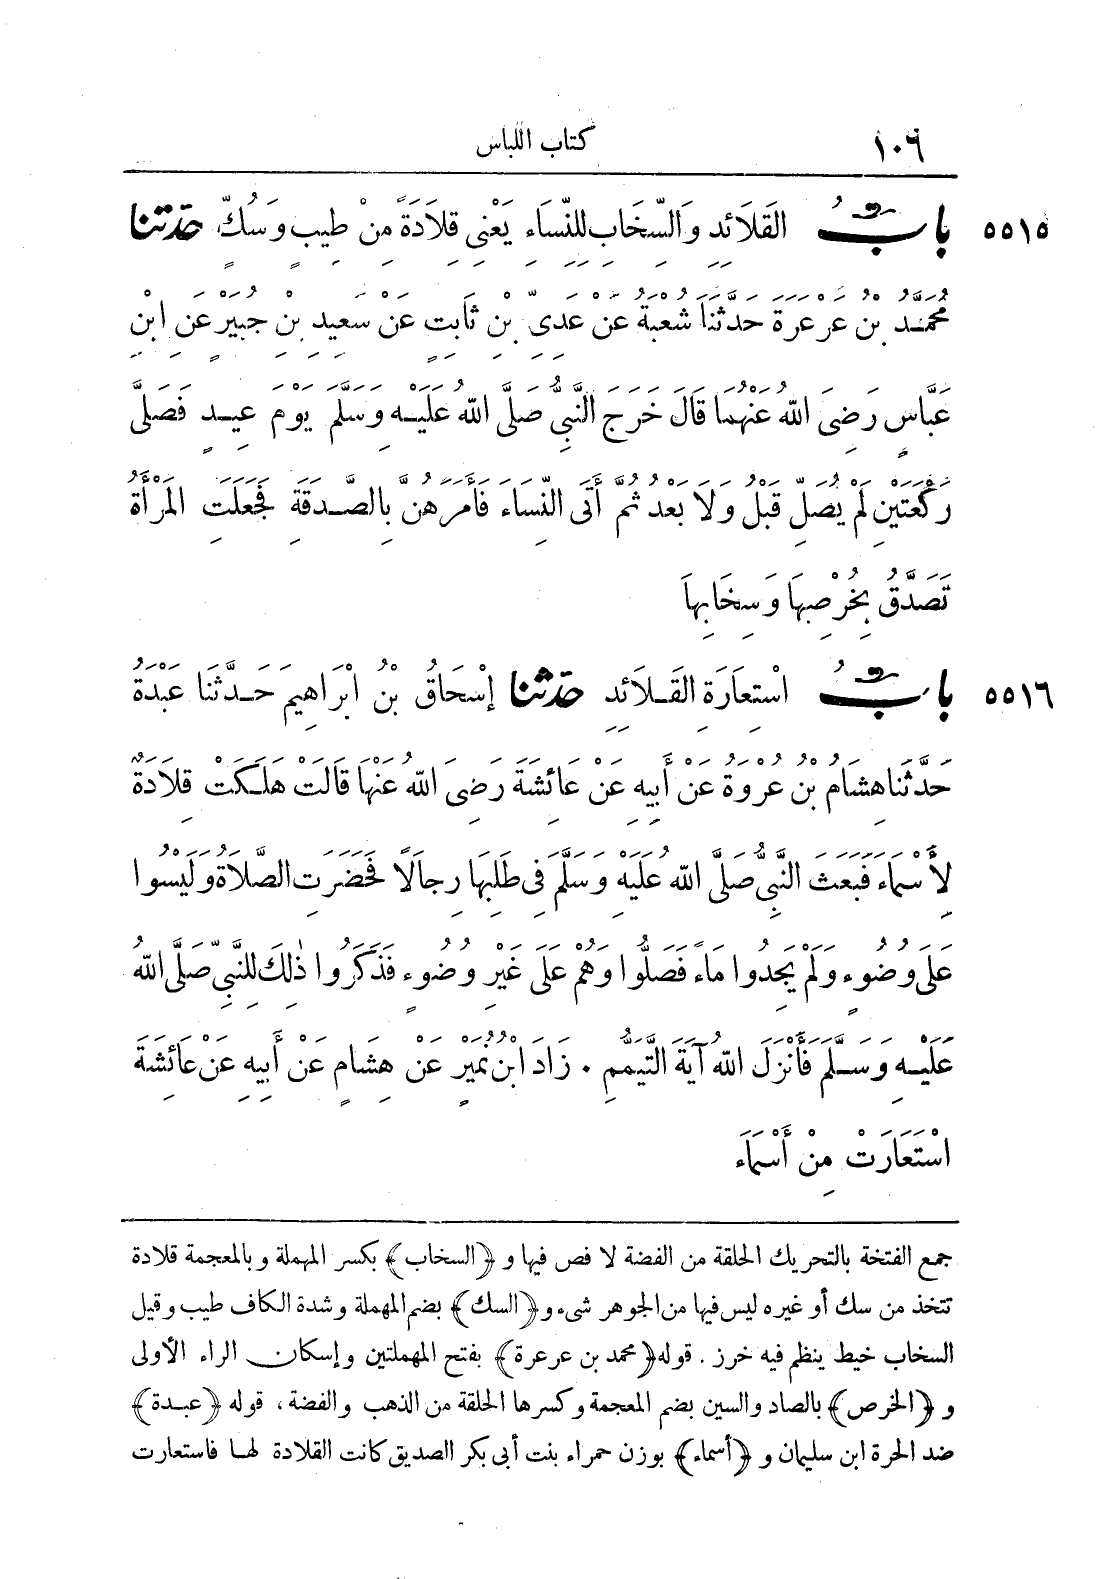 ١٠٦ كتاب اللباس
٥٥١٥ بابُ القَلَائِدِ وَالسِّخَابِ لِلنِّسَاءِ يَعْنِي قِلَادَةً مِنْ طِيبٍ وَسُكٍّ حَدَّثَنَا
مُحَمَّدُ بْنُ عَرْعَرَةَ حَدَّثَنَا شُعْبَةُ عَنْ عَدِيِّ بْنِ ثَابِتٍ عَنْ سَعِيدِ بْنِ جُبَيْرٍ عَنِ ابْنِ
عَبَّاسٍ رَضِيَ اللهُ عَنْهُمَا قَالَ خَرَجَ النَّبِيُّ صَلَّى اللهُ عَلَيْهِ وَسَلَّمَ يَوْمَ عِيدٍ فَصَلَّى
رَكْعَتَيْنِ لَمْ يُصَلِّ قَبْلُ وَلَا بَعْدُ ثُمَّ أَتَى النِّسَاءَ فَأَمَرَهُنَّ بِالصَّدَقَةِ فَجَعَلَتِ المَرْأَةُ
تَصَدَّقُ بِخُرْصِهَا وَسِخَابِهَا
٥٥١٦ بابُ اسْتِعَارَةِ القَلَائِدِ حَدَّثَنَا إِسْحَاقُ بْنُ ابْرَاهِيمَ حَدَّثَنَا عَبْدَةُ
حَدَّثَنَا هِشَامُ بْنُ عُرْوَةَ عَنْ أَبِيهِ عَنْ عَائِشَةَ رَضِيَ اللهُ عَنْهَا قَالَتْ هَلَكَتْ قِلَادَةٌ
لِأَسْمَاءَ فَبَعَثَ النَّبِيُّ صَلَّى اللهُ عَلَيْهِ وَسَلَّمَ فِي طَلَبِهَا رِجَالًا فَحَضَرَتِ الصَّلَاةُ وَلَيْسُوا
عَلَى وُضُوءٍ وَلَمْ يَجِدُوا مَاءً فَصَلُّوا وَهُمْ عَلَى غَيْرِ وُضُوءٍ فَذَكَرُوا ذٰلِكَ لِلنَّبِيِّ صَلَّى اللهُ
عَلَيْهِ وَسَلَّمَ فَأَنْزَلَ اللهُ آيَةَ التَّيَمُّمِ . زَادَ ابْنُ نُمَيْرٍ عَنْ هِشَامٍ عَنْ أَبِيهِ عَنْ عَائِشَةَ
اسْتَعَارَتْ مِنْ أَسْمَاءَ
جمع الفتخة بالتحريك الحلقة من الفضة لا فص فيها و ﴿السخاب﴾ بكسر المهملة وبالمعجمة قلادة
تتخذ من سك أو غيره ليس فيها من الجوهر شيء و﴿السك﴾ بضم المهملة وشدة الكاف طيب وقيل
السخاب خيط ينظم فيه خرز . قوله ﴿محمد بن عرعرة﴾ بفتح المهملتين وإسكان الراء الأولى
و ﴿الخرص﴾ بالصاد والسين بضم المعجمة وكسرها الحلقة من الذهب والفضة، قوله ﴿عبدة﴾
ضد الحرة ابن سليمان و ﴿أسماء﴾ بوزن حمراء بنت أبى بكر الصديق كانت القلادة لها فاستعارت